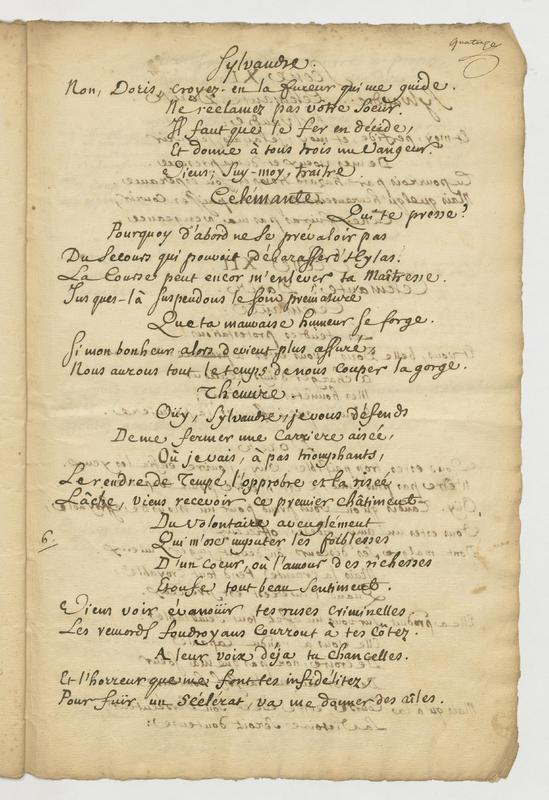 quatorze
Sylvandre.
Non, Doris, croyez-en la fureur qui me guide.
Ne réclamez pas votre Soeur.
Il faut que le fer en décide,
Et donne à tous trois un Vangeur.
Viens; Suy-moy, traître.
Célémante.
Qui te presse?
Pourquoy d'abord ne se prévaloir pas
Du Secours qui pouvoit débarasser d'Hylas!
La Course peut encor m'enlever ta Maîtresse.
Jusques-là suspendons le soin prématuré
Que ta mauvaise humeur se forge.
Si mon bonheur alors devient plus assuré,
Nous aurons tout le temps de nous couper la gorge.
Thémire.
Oüy, Sylvandre, je vous défends
De me fermer une Carriere aisée,
Où je vais, à pas triomphants,
Le rendre de Tempé l'opprobre et la risée
Lâche, viens recevoir ce premier châtiment
Du volontaire aveuglement
6. Qui m'ose imputer les foiblesses
D'un Coeur, où l'amour des richesses
Etouffe tout beau sentiment.
Viens voir évanoüir tes ruses criminelles
Les remords foudroyans Courront à tes Côtez.
A leur voix déja tu Chancelles.
Et l'horreur que me font tes infidélitez,
Pour fuir un Scélérat, va me donner des aîles.